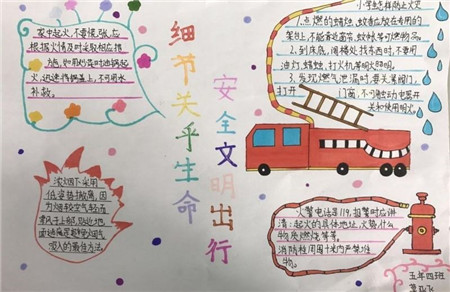 家中起火,不要慌张,应
根据火情及时采取相应措
施,如用炒菜时油锅起
火,迅速将锅盖上,不可用水
补救。
细节关乎生命
安全文明出行
小学生怎样防止火灾
1.点燃的蜡烛,蚊香应放在专用的
架台上,不能靠近窗帘,蚊帐等可燃物品。
2.到床底,阁楼处找东西时,不要用
油灯,蜡烛,打火机等明火照明。
3.发现燃气泄漏时,要关紧阀门,
打开门窗,不可触动电器开
关和使用明火。
浓烟下采用
低姿势撤离,因
为烟较空气轻而
飘于上部,贴近地
面逃离是避免烟气
吸入的最佳方法。
火警电话是119,报警时应讲
清:起火的具体地址,火势,什么
物质燃烧等等。
消防栓周围十米内严禁堆
物。
五年四班